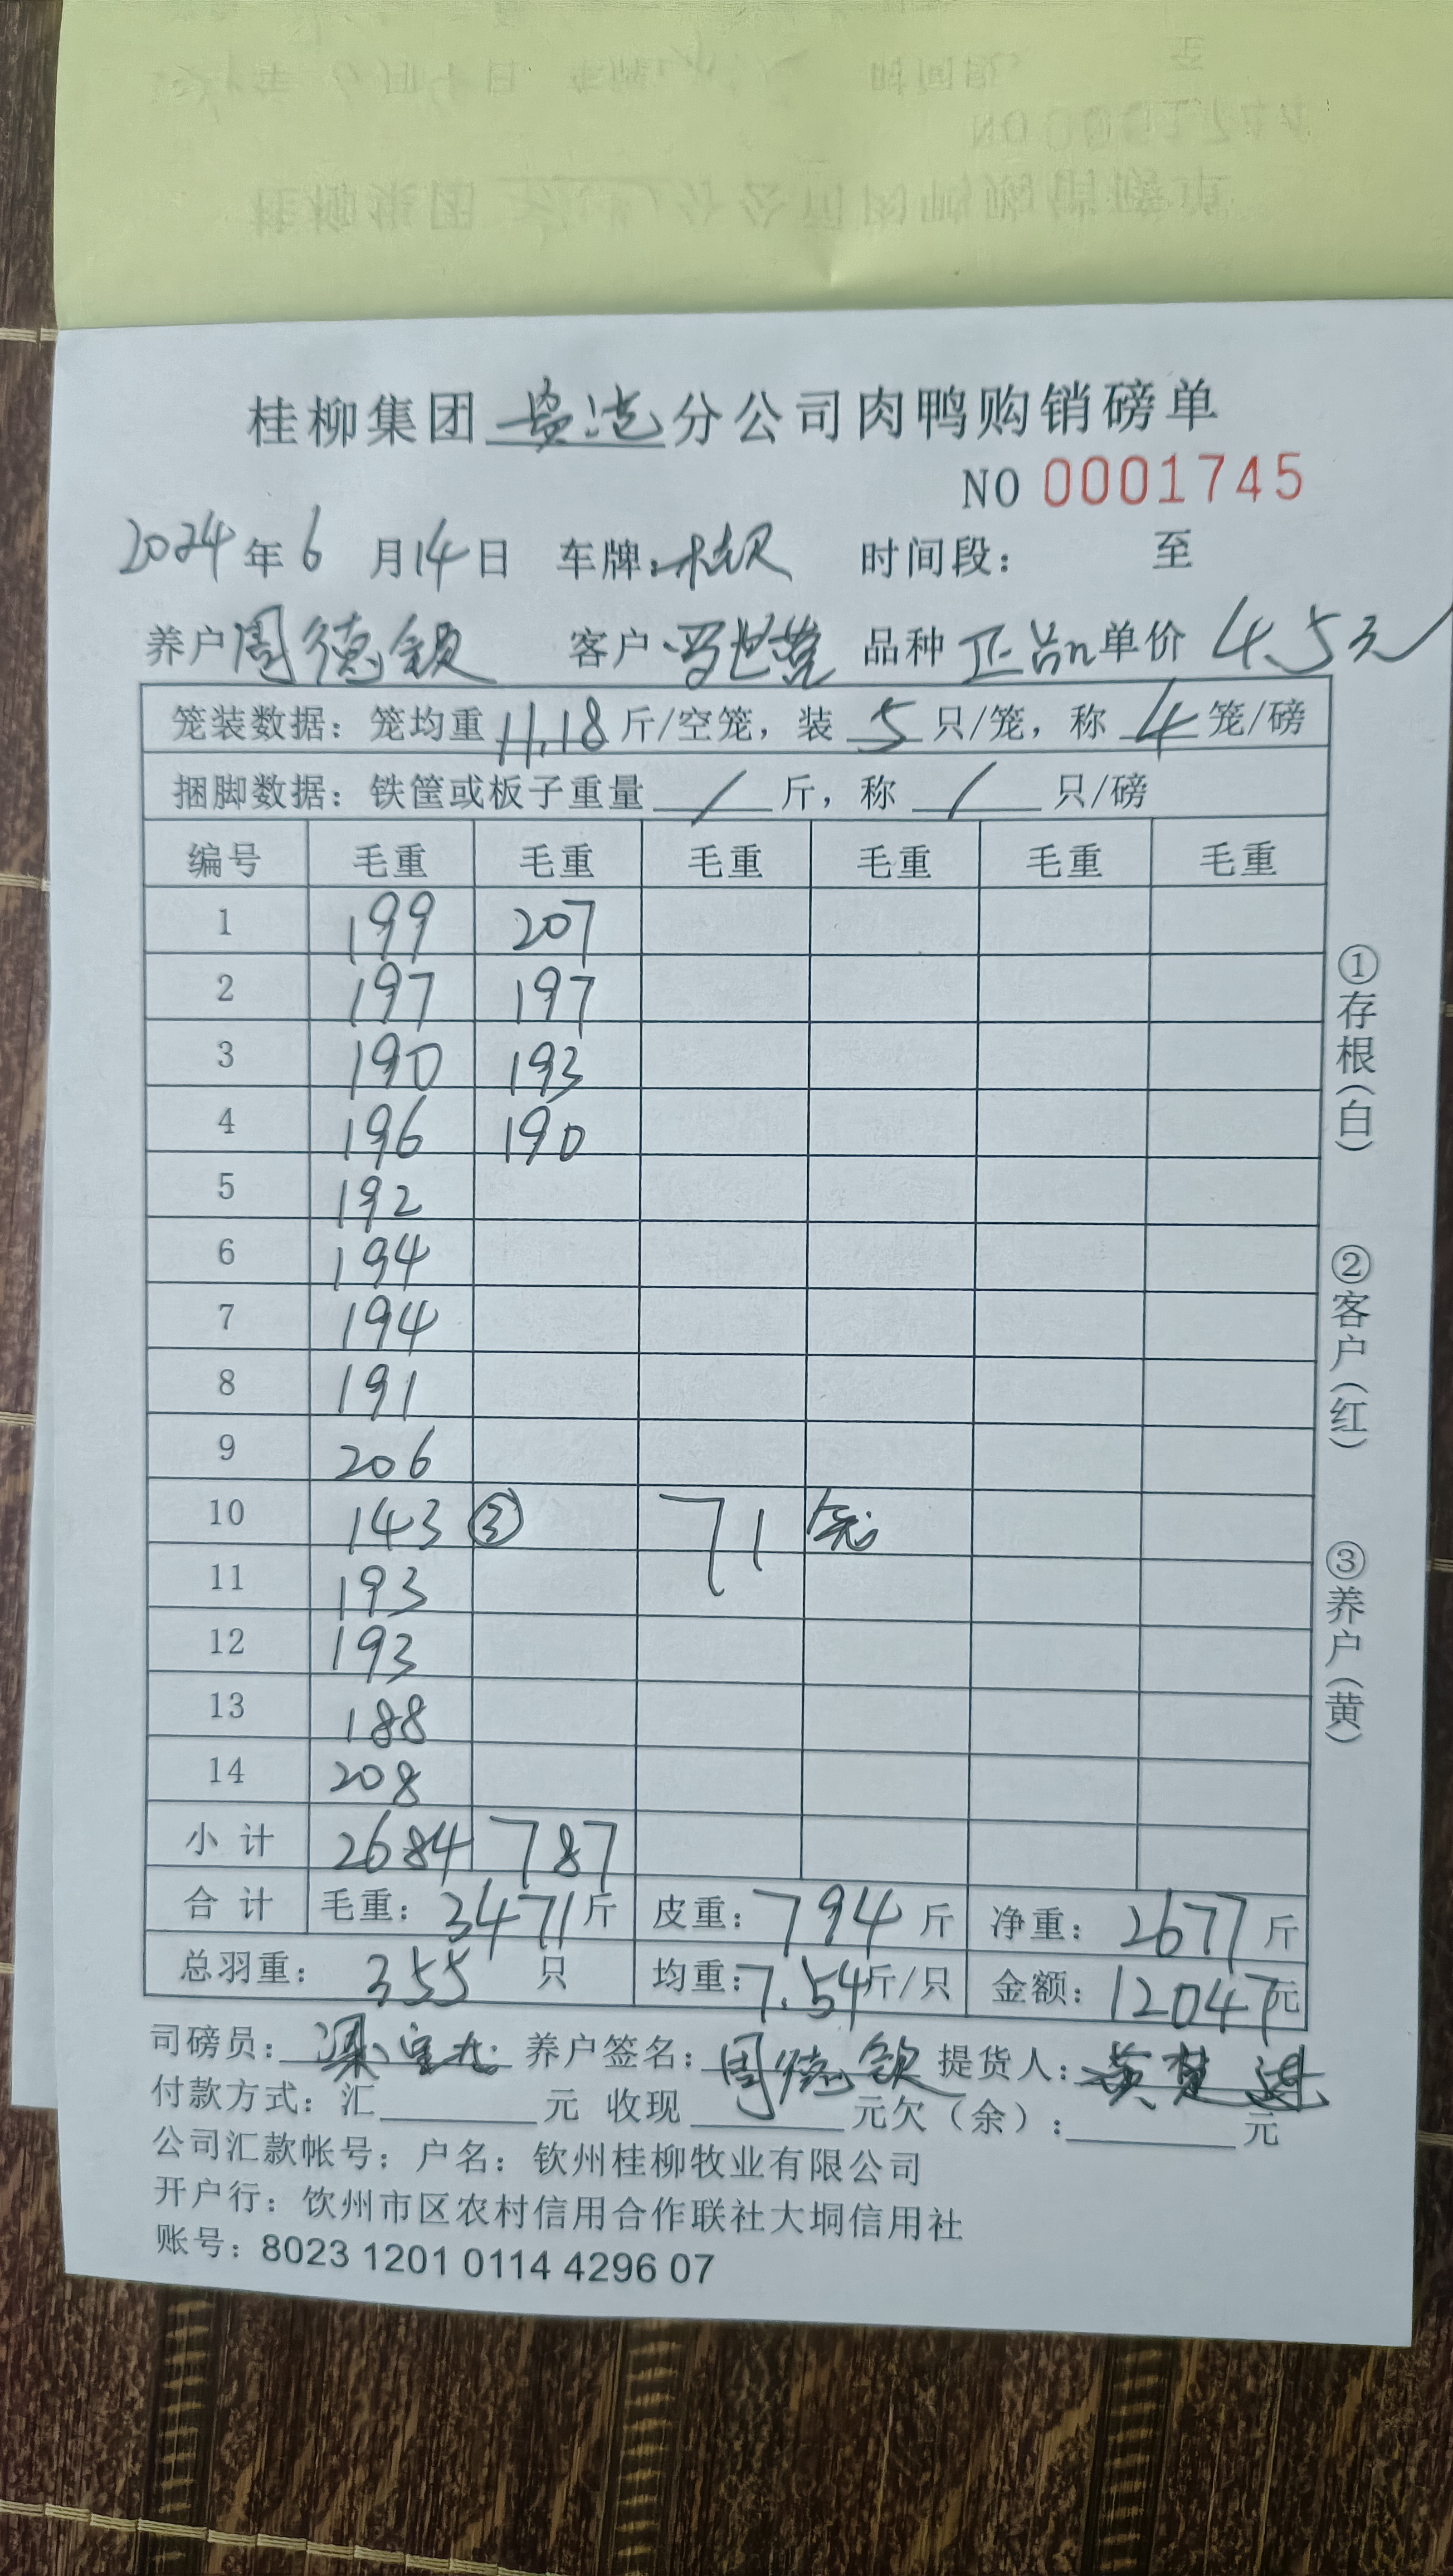 桂柳集团 分公司肉鸭购销磅单
NO 0001745
2024年6月14日 车牌: 时间段: 至
养户周德钦 客户 品种 正品 单价 4.5元
笼装数据: 笼均重 11.18 斤/空笼, 装 5 只/笼, 称 4 笼/磅
捆脚数据: 铁筐或板子重量 / 斤, 称 / 只/磅
编号 毛重 毛重 毛重 毛重 毛重 毛重
1 199 207
2 197 197
3 190 193
4 196 190
5 192
6 194
7 194
8 191
9 206
10 143 ③ 71
11 193
12 193
13 188
14 208
小计 2684 787
合计 毛重: 3471斤 皮重: 794斤 净重: 2677斤
总羽重: 355 只 均重: 7.54斤/只 金额: 12047元
司磅员: 养户签名: 周德钦 提货人:
付款方式: 汇 元 收现 元欠(余): 元
公司汇款帐号: 户名: 钦州桂柳牧业有限公司
开户行: 饮州市区农村信用合作联社大垌信用社
账号: 8023 1201 0114 4296 07
①存根(白)
②客户(红)
③养户(黄)